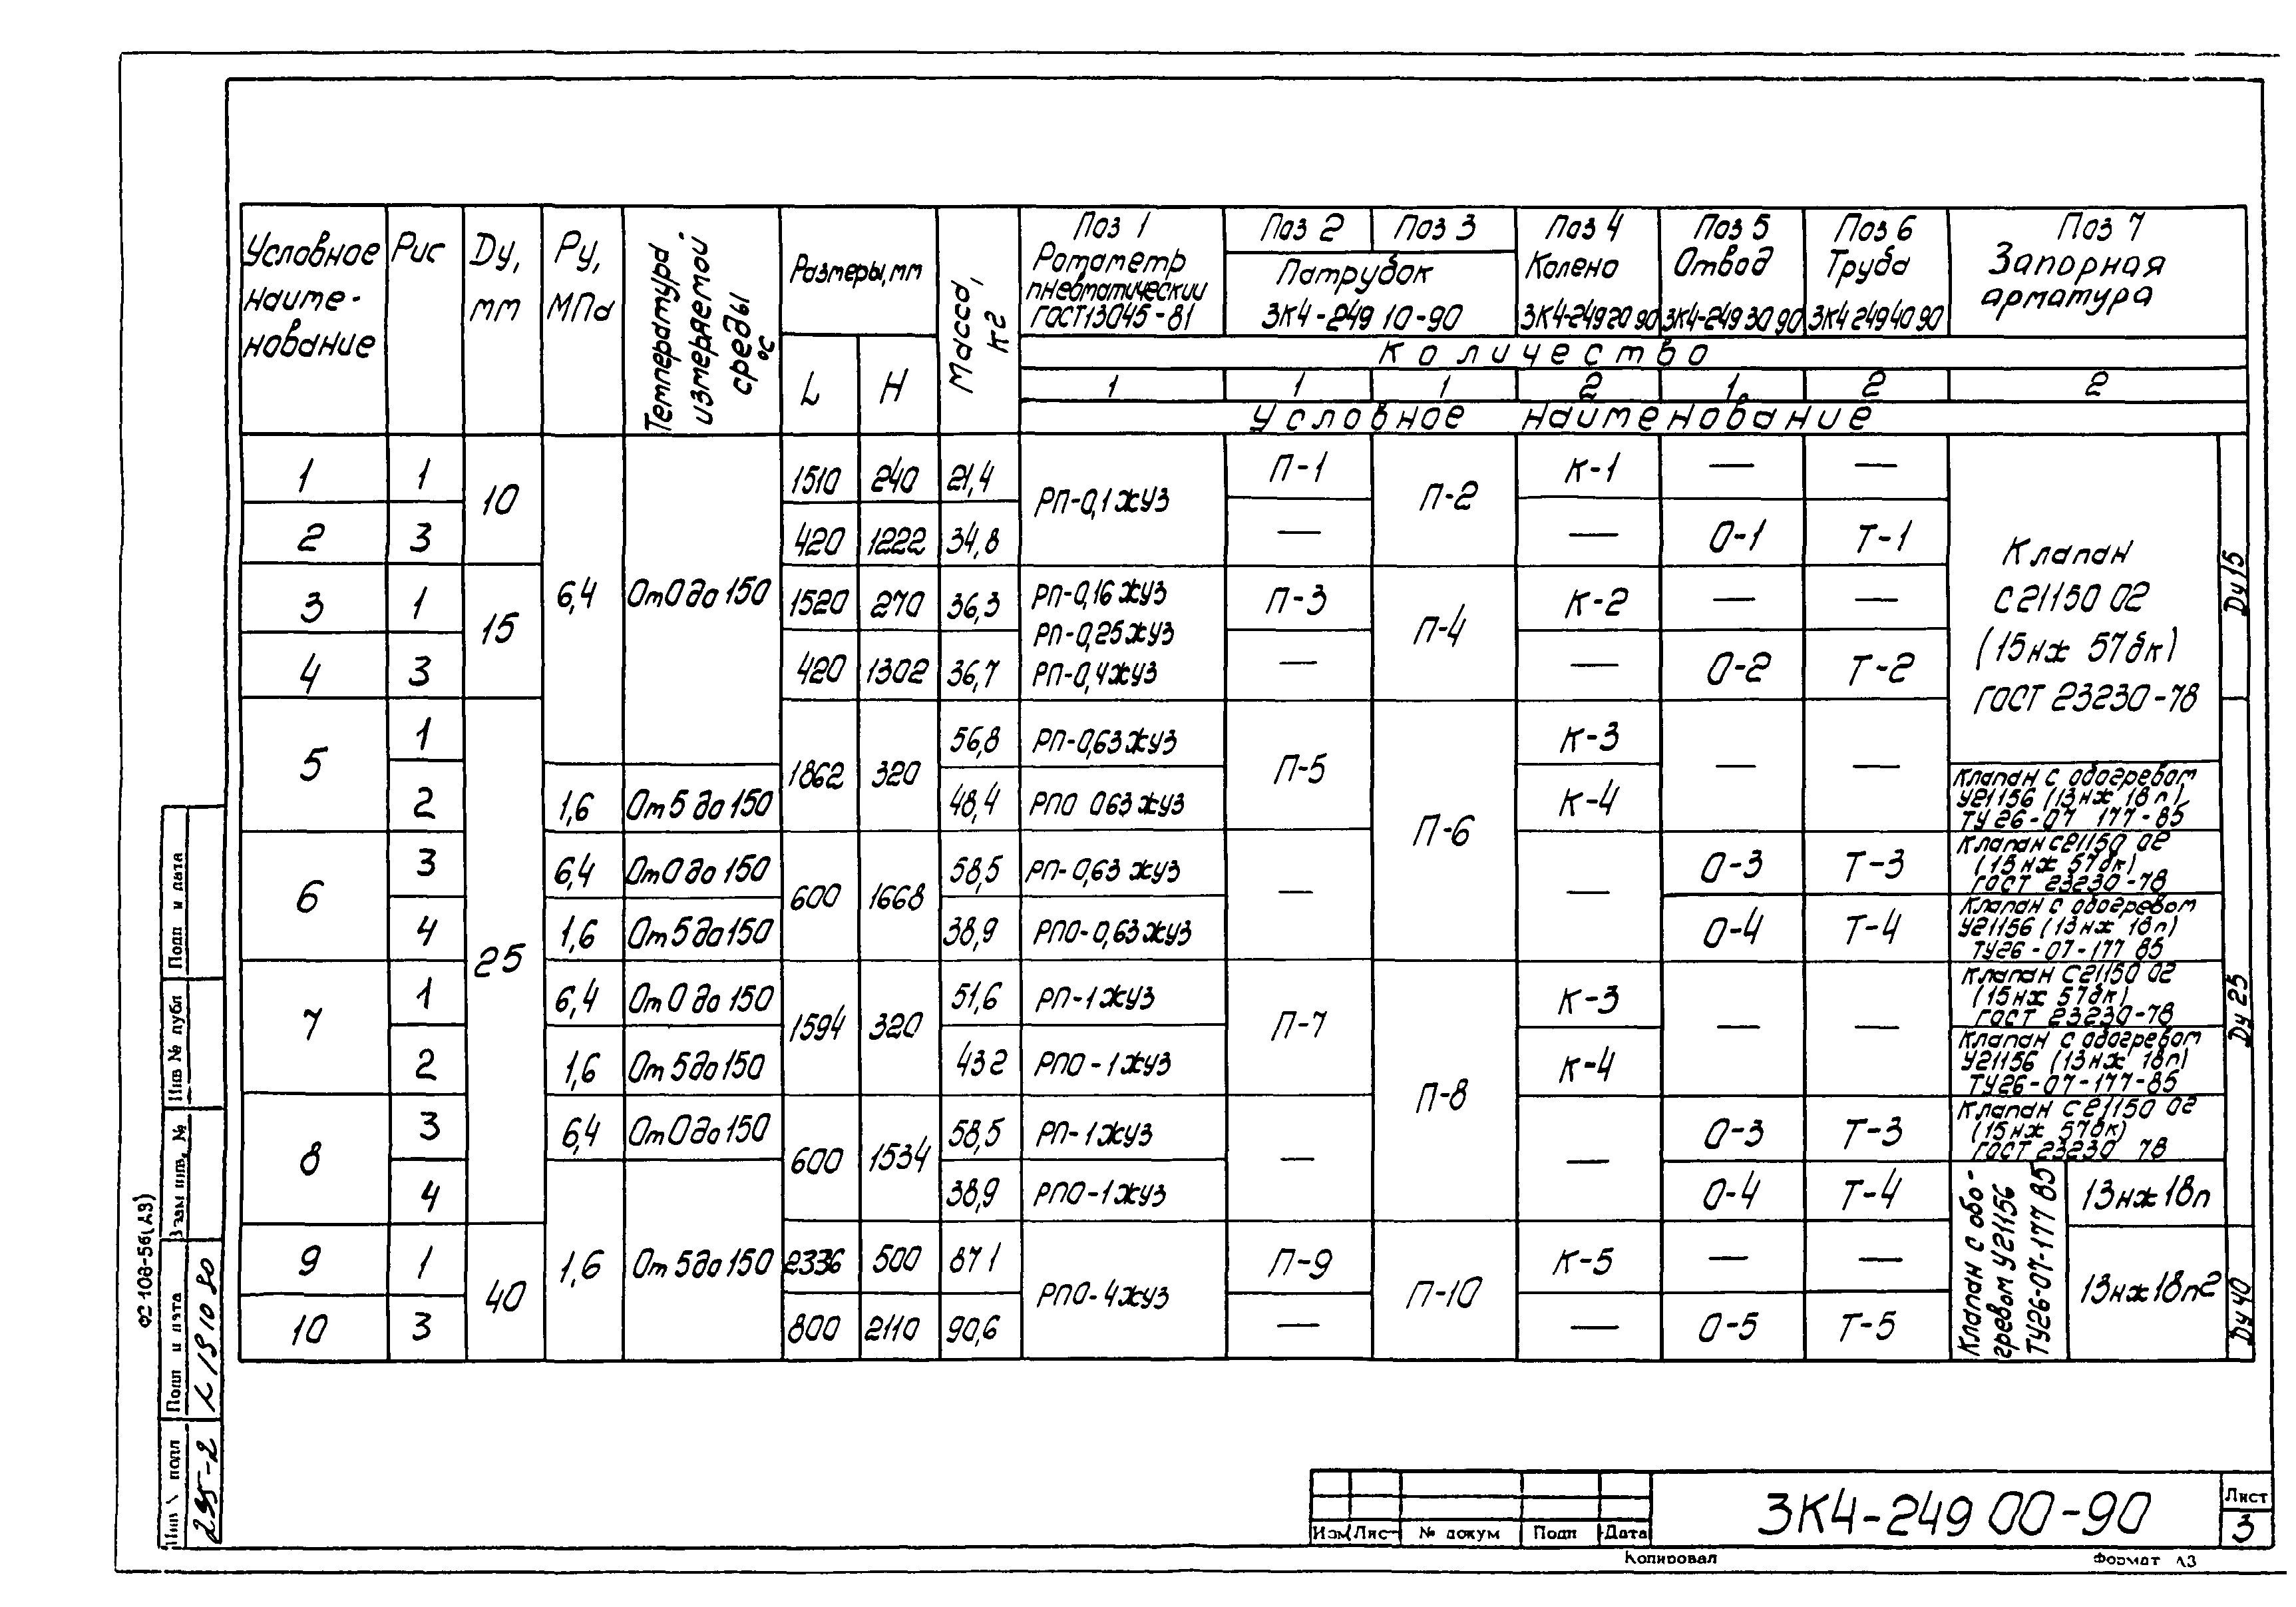 Условное наиме-нование
Рис
Dу, мм
Ру, МПа
Температура измеряемой среды °С
Размеры, мм
L
H
Масса, кг
Поз 1
Ротаметр
пневматический
ГОСТ 13045-81
Поз 2
Поз 3
Патрубок
ЗК4-249 10-90
Поз 4
Колено
ЗК4-249 20 90
Поз 5
Отвод
ЗК4-249 30 90
Поз 6
Труба
ЗК4 249 40 90
Поз 7
Запорная
арматура
Количество
1 1 1 2 1 2 2
Условное наименование
1 1 10 6,4 От 0 до 150 1510 240 21,4 РП-0,1 ЖУЗ П-1 П-2 К-1 — —
2 3 420 1222 34,8 — — О-1 Т-1
Клапан
С 21150 02
(15нж 57бк)
ГОСТ 23230-78
Dу 15
3 1 15 1520 270 36,3 РП-0,16 ЖУЗ П-3 П-4 К-2 — —
РП-0,25 ЖУЗ
4 3 420 1302 36,7 РП-0,4 ЖУЗ — — О-2 Т-2
5 1 25 1862 320 56,8 РП-0,63 ЖУЗ П-5 П-6 К-3 — —
2 1,6 От 5 до 150 48,4 РПО 063 ЖУЗ К-4
Клапан с обогревом
У21156 (13нж 18п)
ТУ 26-07 177-85
6 3 6,4 От 0 до 150 600 1668 58,5 РП-0,63 ЖУЗ — — О-3 Т-3
Клапан С 21150 02
(15нж 57бк)
ГОСТ 23230-78
4 1,6 От 5 до 150 38,9 РПО-0,63 ЖУЗ О-4 Т-4
Клапан с обогревом
У21156 (13нж 18п)
ТУ26-07-177 85
7 1 6,4 От 0 до 150 1594 320 51,6 РП-1 ЖУЗ П-7 П-8 К-3 — —
Клапан С 21150 02
(15нж 57бк)
ГОСТ 23230-78
Dу 25
2 1,6 От 5 до 150 43 2 РПО-1 ЖУЗ К-4
Клапан с обогревом
У21156 (13нж 18п)
ТУ26-07-177-85
8 3 6,4 От 0 до 150 600 1534 58,5 РП-1 ЖУЗ — — О-3 Т-3
Клапан С 21150 02
(15нж 57бк)
ГОСТ 23230 78
4 1,6 От 5 до 150 38,9 РПО-1 ЖУЗ О-4 Т-4
Клапан с обо-
гревом У21156
ТУ26-07-177 85
13нж18п
9 1 40 2336 500 87 1 РПО-4 ЖУЗ П-9 П-10 К-5 — —
13нж18п2
Dу 40
10 3 800 2110 90,6 — — О-5 Т-5
Ф2 108-56(А3)
Подп и дата
Инв № дубл
Взам инв. №
Подп и дата
Инв № подл
295-2
Изм Лис № докум Подп Дата
ЗК4-249 00-90
Лист
3
Копировал
Формат А3